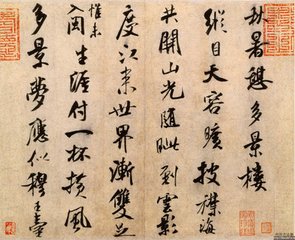 秋暑憩多景樓
縱目天容曠披襟海
共開山光隨眦到雲影
度江來世界漸雙足
惟未
生涯付一杯横風
多景夢應似穆王臺